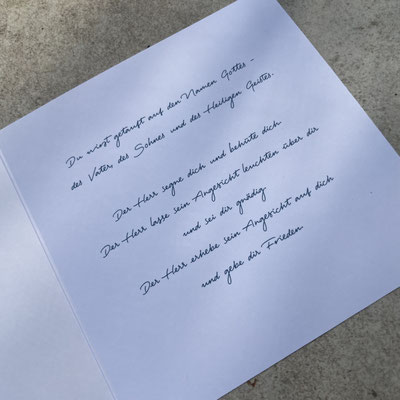 Du wirst getauft auf den Namen Gottes -
des Vater, des Sohnes und des Heiligen Geistes.
Der Herr segne dich und behüte dich
Der Herr lasse sein Angesicht leuchten über dir
und sei dir gnädig
Der Herr erhebe sein Angesicht auf dich
und gebe dir Frieden